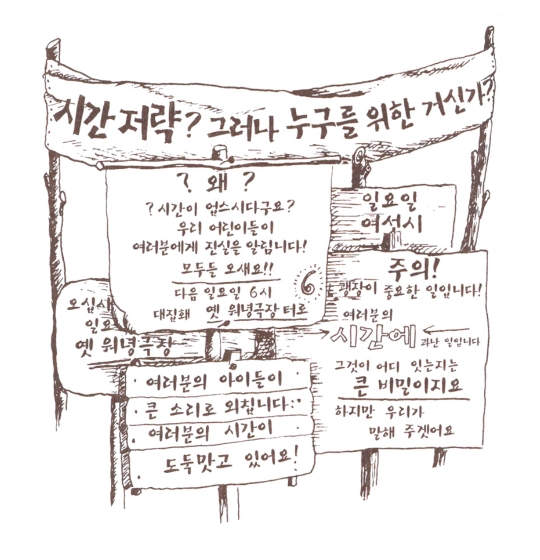 시간 저략? 그러나 누구를 위한 거신가?
? 왜 ?
? 시간이 업스시다구요?
우리 어린이들이
여러분에게 진실을 알림니다!
모두들 오새요!!
6
다음 일요일 6시
대집해 옛 워녕극장 터로
일요일
여섯시
주의!
괭장이 중요한 일입니다!
여러분의
시간에 과난 일입니다
그것이 어디 잇는지는
큰 비밀이지요
하지만 우리가
말해 주겟어요
오십새
일요
옛 워녕극장
여러분의 아이들이
큰 소리로 외칩니다:
여러분의 시간이
도둑맞고 있어요!